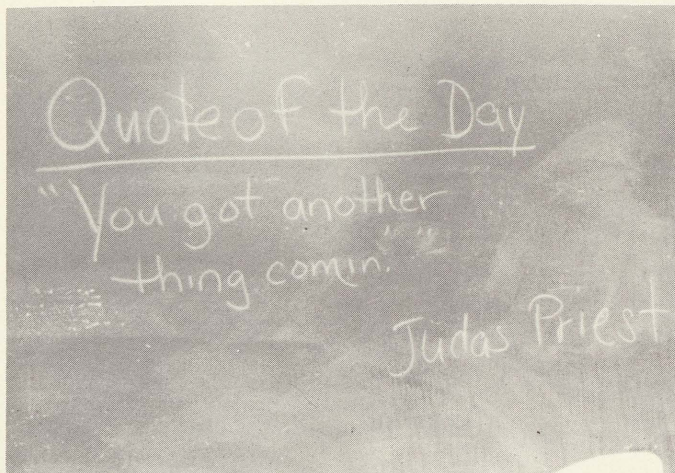 Quote of the Day
"You got another
thing comin."
Judas Priest